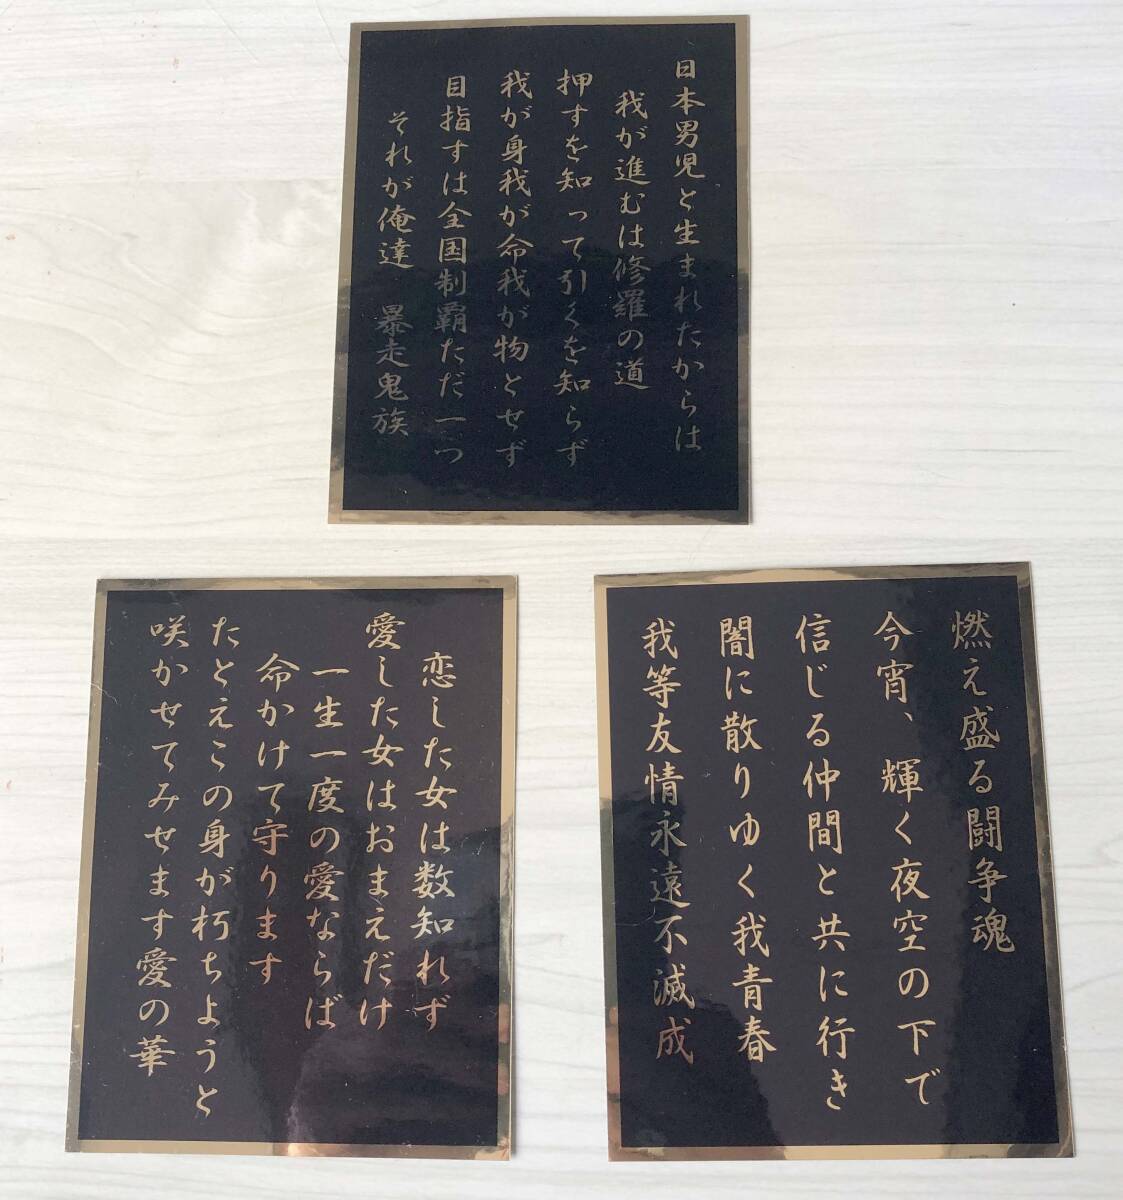 日本男児と生まれたからは
我が進むは修羅の道
押すを知って引くを知らず
我が身我が命我が物とせず
目指すは全国制覇ただ一つ
それが俺達 暴走鬼族
恋した女は数知れず
愛した女はおまえだけ
一生一度の愛ならば
命かけて守ります
たとえこの身が朽ちようと
咲かせてみせます愛の華
燃え盛る闘争魂
今宵、輝く夜空の下で
信じる仲間と共に行き
闇に散りゆく我青春
我等友情永遠不滅成